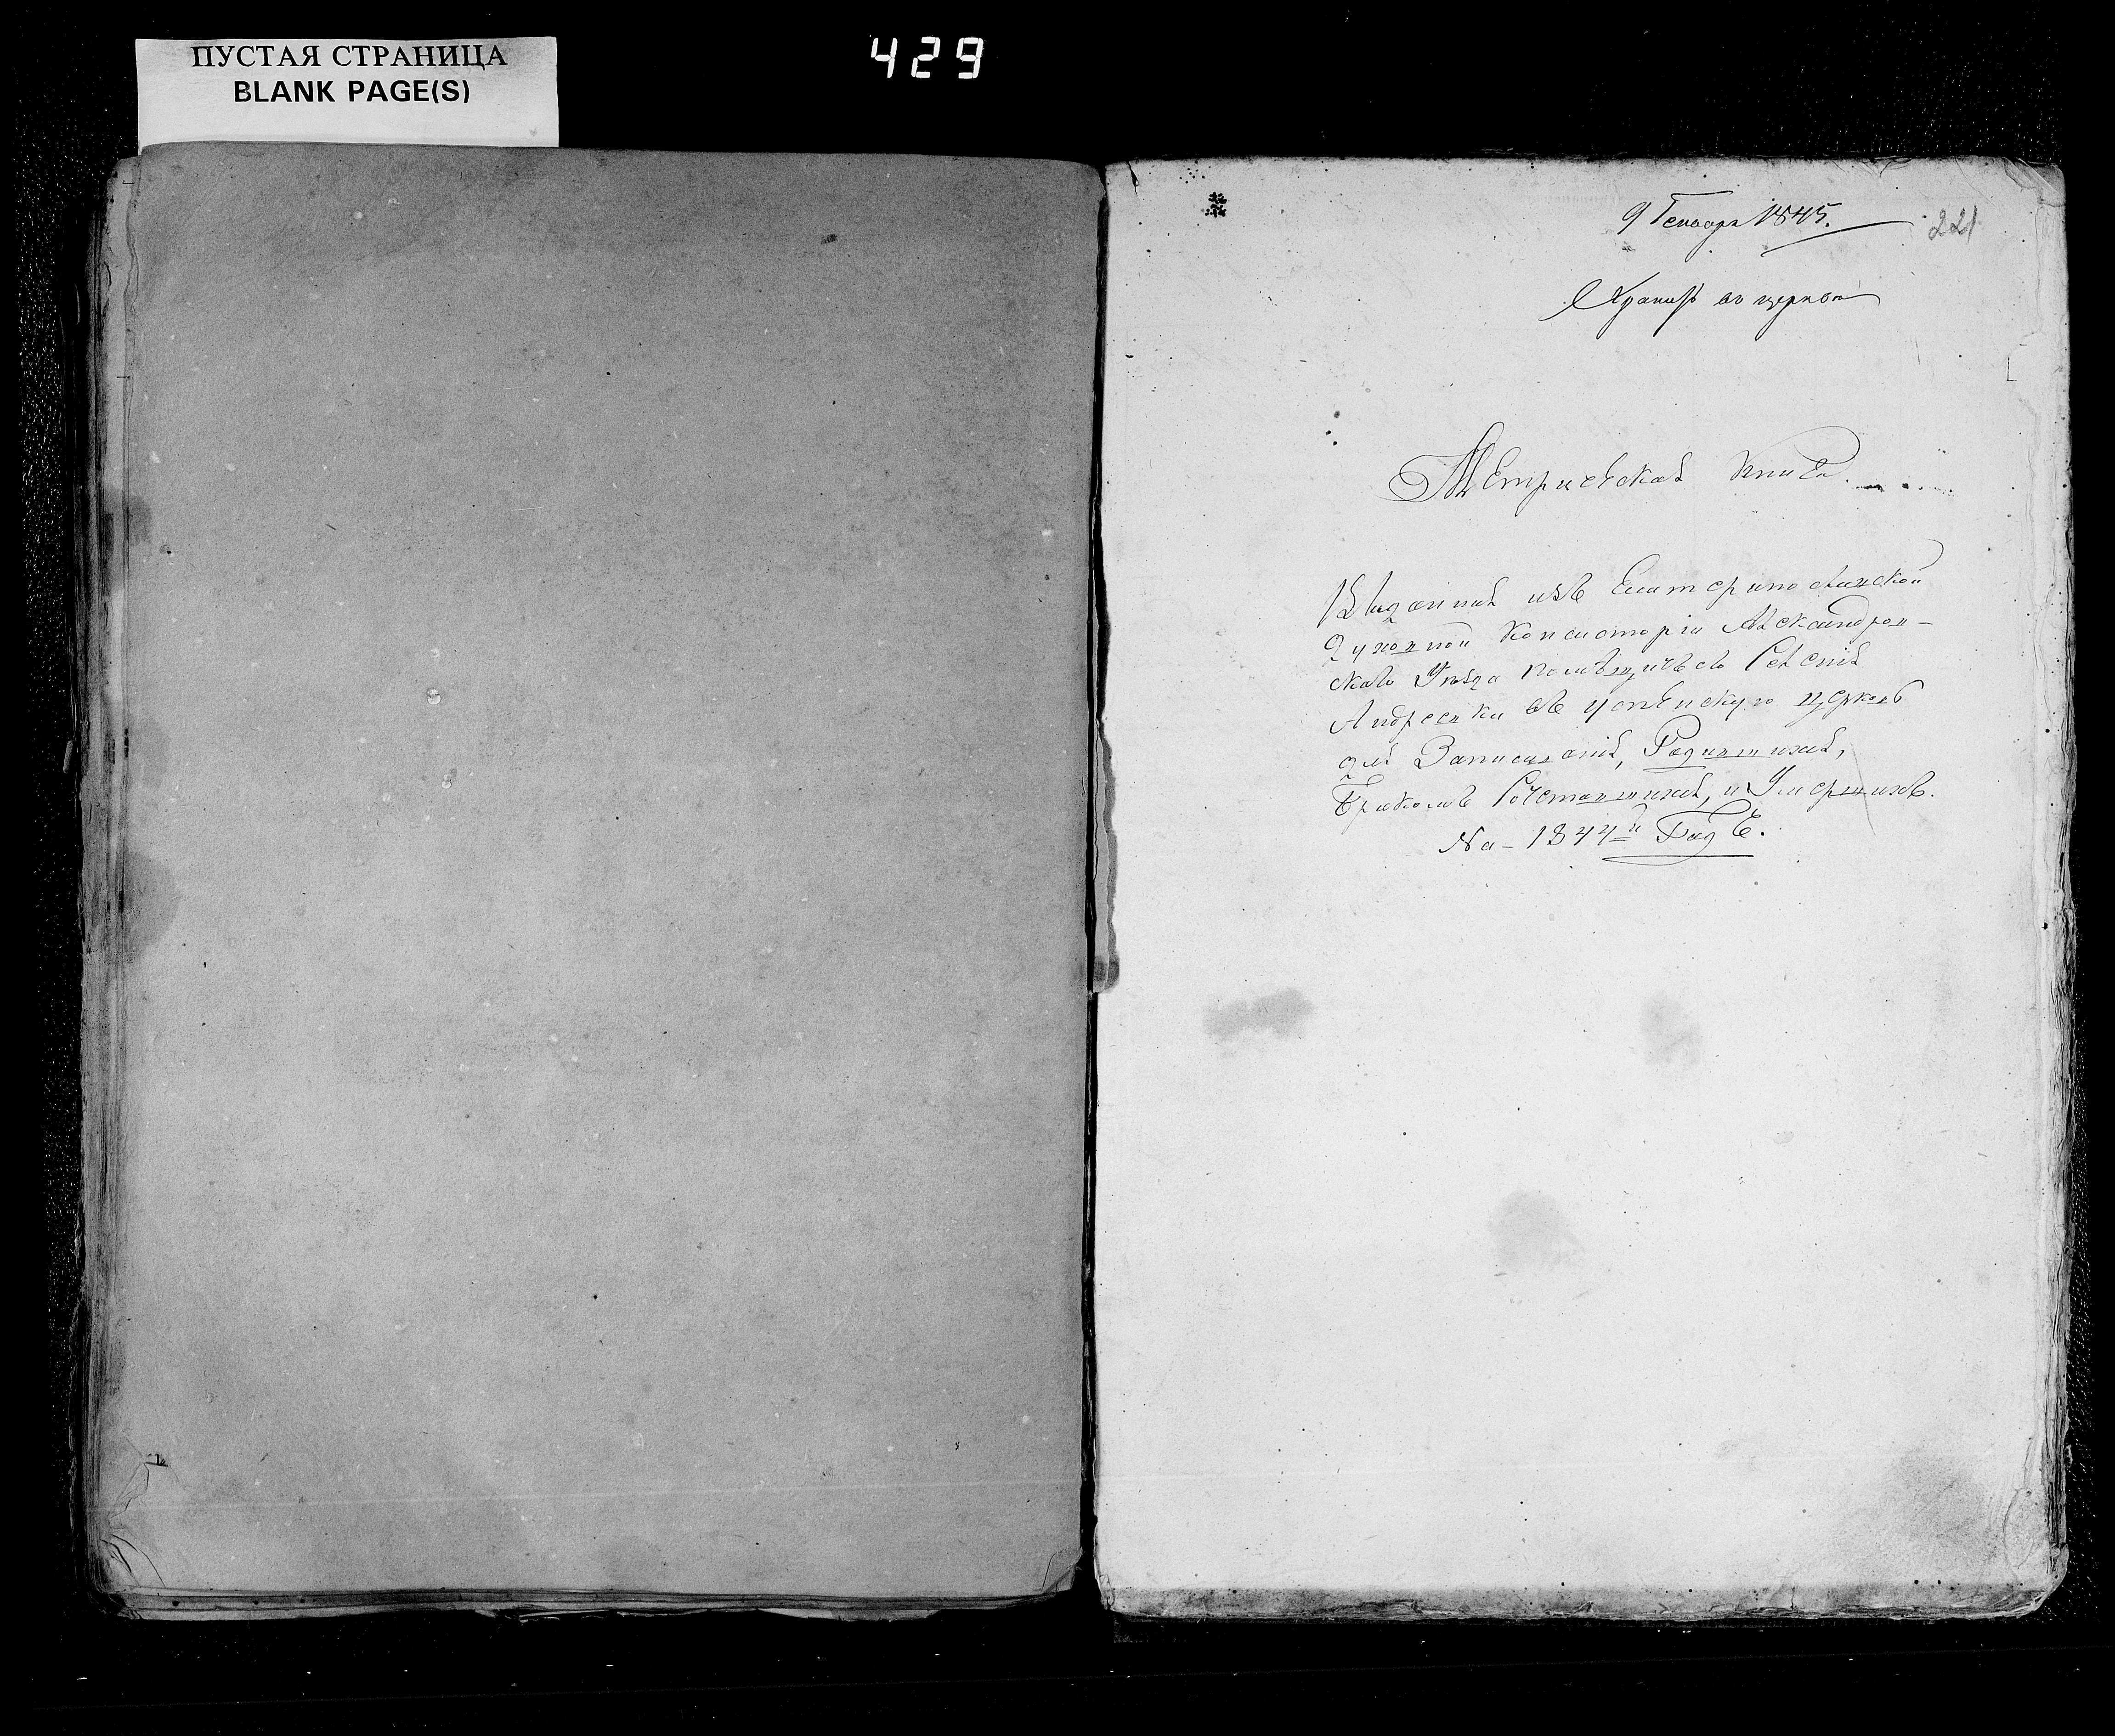 ПУСТАЯ СТРАНИЦА
BLANK PAGE(S)
429
9 Генваря 1845.
221
Хранить въ церкви
Метрическая Книга
Выданная изъ Екатеринославской
Духовной Консисторіи Александров-
скаго Уѣзда помѣщичьяго Селенія
Андреевки въ успенскую церковь
для Записыванія, Родившихся,
Бракомъ Сочетавшихся, и Умершихъ.
На - 1844й Годъ.